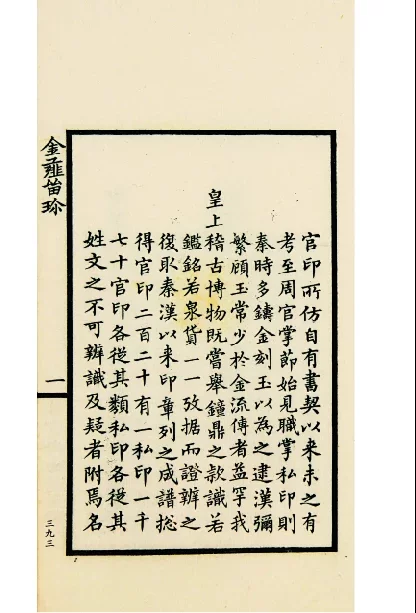 官印所仿自有書契以來未之有
考至周官掌節始見職掌私印則
秦時多鑄金刻玉以為之逮漢彌
繁顧玉常少於金流傳者益罕我
皇上稽古博物既嘗舉鐘鼎之款識若
鑑銘若泉貨一一攷据而證辨之
復取秦漢以來印章列之成譜捴
得官印二百二十有一私印一千
七十官印各從其類私印各從其
姓文之不可辨識及疑者附焉名
金薤留珎
一
三九三